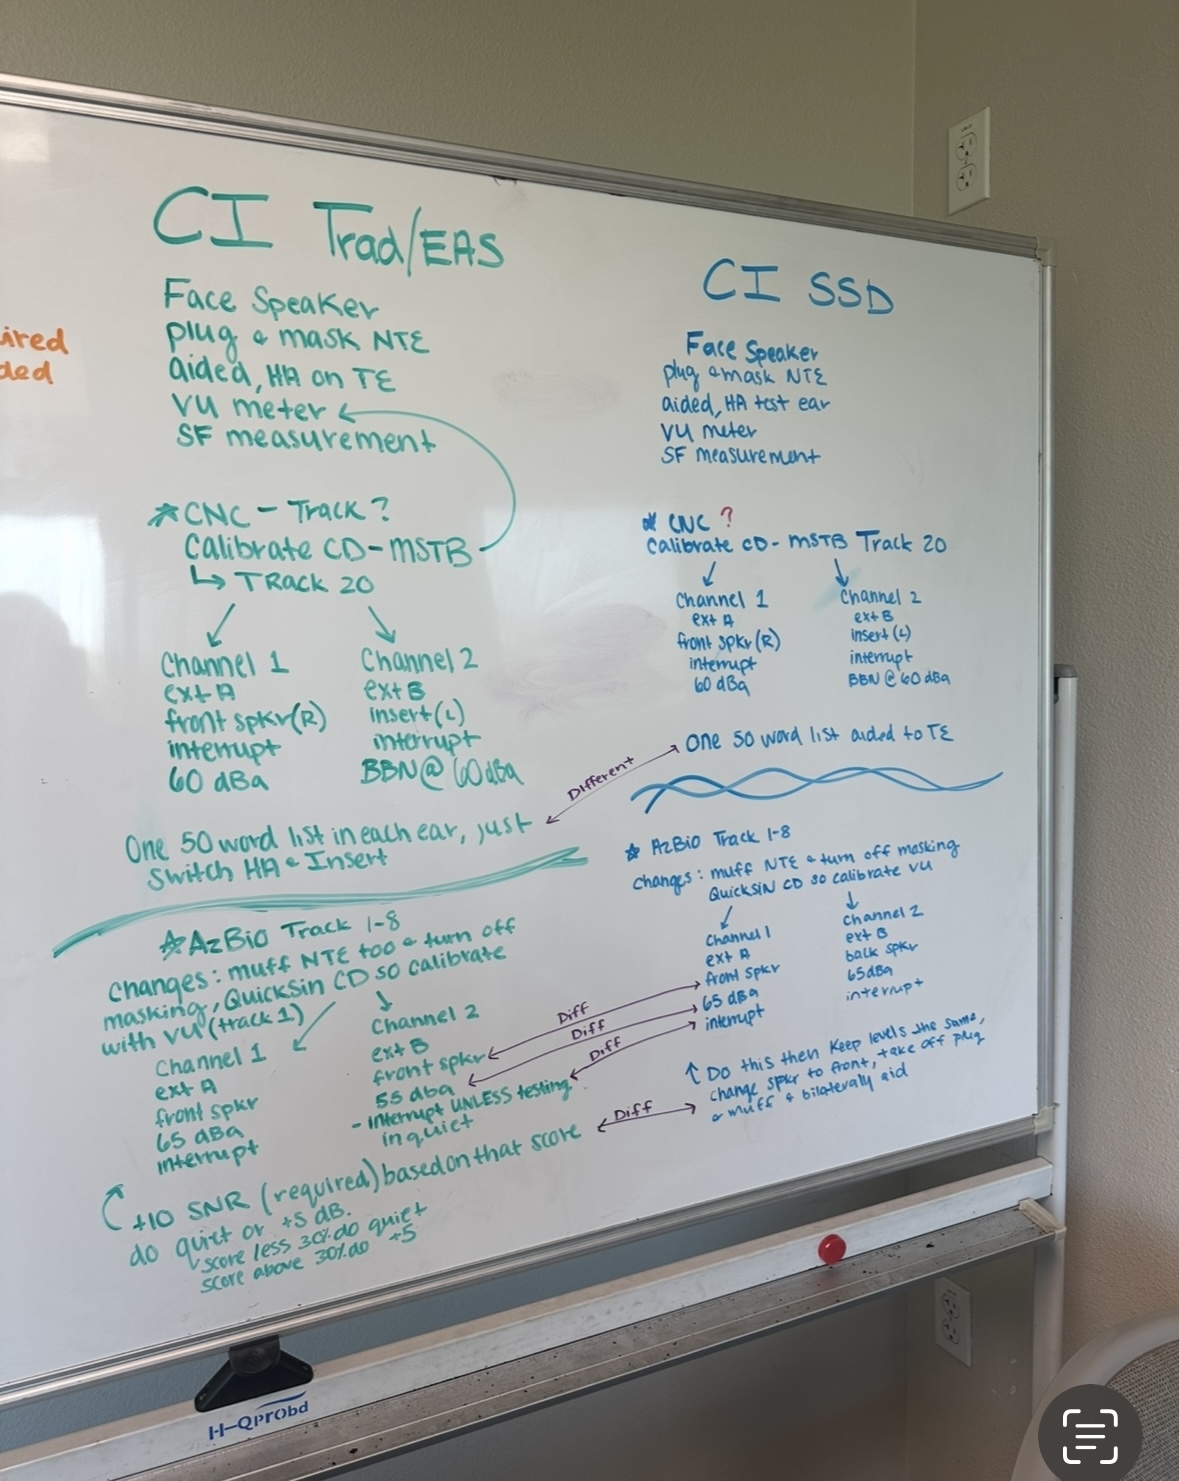 ired
ded
CI Trad/EAS
Face Speaker
plug & mask NTE
aided, HA on TE
VU meter
SF measurement
*CNC - Track?
Calibrate CD-MSTB
↳ TRack 20
Channel 1
ext A
front spkr(R)
interrupt
60 dBa
Channel 2
ext B
insert(L)
interrupt
BBN @ 60 dBa
One 50 word list in each ear, just
switch HA & Insert
*AzBio Track 1-8
changes: muff NTE too & turn off
masking, Quicksin CD so calibrate
with VU (track 1)
Channel 1
ext A
front spkr
65 dBa
interrupt
Channel 2
ext B
front spkr
55 dba
- Interrupt UNLESS testing
in quiet
+10 SNR (required) based on that score
do quiet or +5 dB.
score less 30% do quiet
score above 30% do +5
Different
Diff
Diff
Diff
Diff
CI SSD
Face Speaker
plug & mask NTE
aided, HA test ear
VU meter
SF measurement
* CNC ?
Calibrate CD- MSTB Track 20
Channel 1
ext A
front spkr(R)
interrupt
60 dBa
Channel 2
ext B
insert(L)
interrupt
BBN @ 60 dBa
One 50 word list aided to TE
* AzBio Track 1-8
changes: muff NTE & turn off masking
QuickSIN CD so calibrate VU
Channel 1
ext A
front spkr
65 dBa
interrupt
Channel 2
ext B
back spkr
65 dBa
interrupt
↑ Do this then Keep levels the same,
change spkr to front, take off plug
& muff & bilaterally aid
H-Qprobd